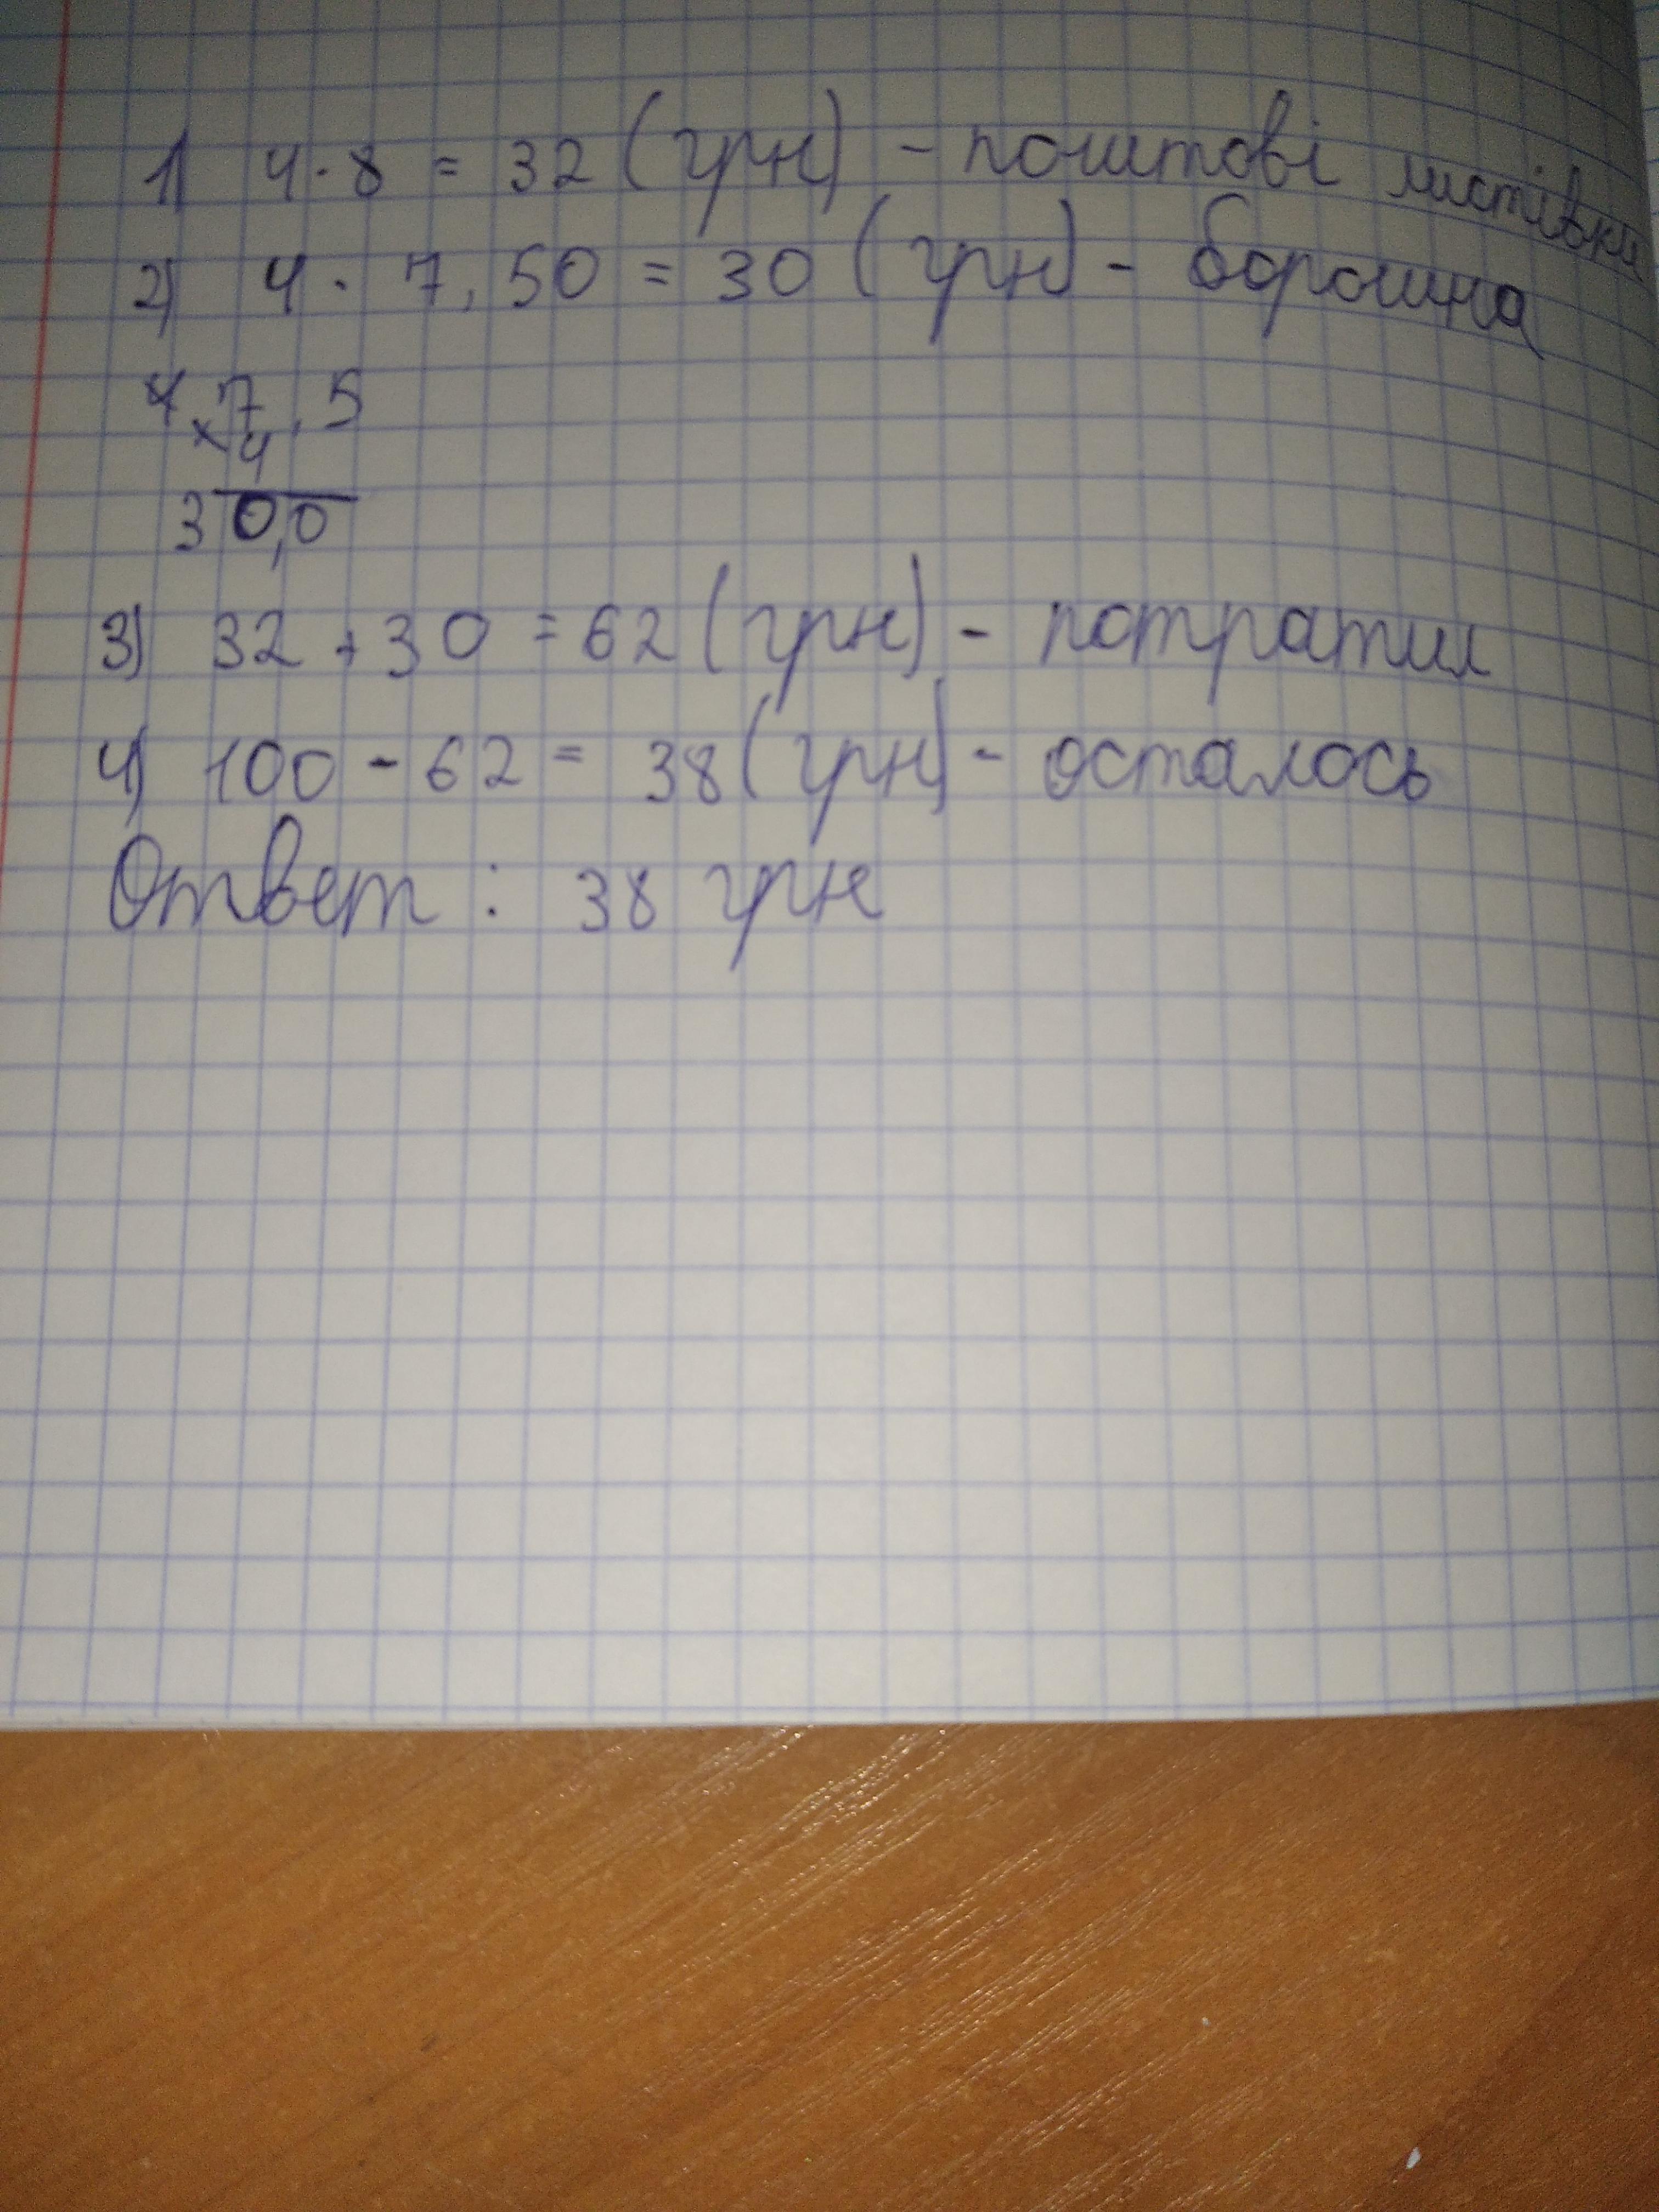 1) 4 · 8 = 32 (грн) - поштові листівки
2) 4 · 7,50 = 30 (грн) - борошна
× 7,5
4
30,0
3) 32 + 30 = 62 (грн) - потратил
4) 100 - 62 = 38 (грн) - осталось
Ответ : 38 грн